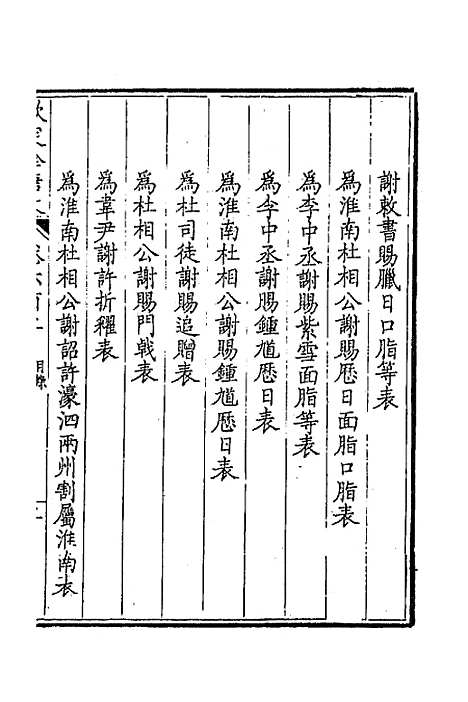 謝敕書賜臘日口脂等表
為淮南杜相公謝賜歷日面脂口脂表
為李中丞謝賜紫雪面脂等表
為李中丞謝賜鍾馗歷日表
為淮南杜相公謝賜鍾馗歷日表
為杜司徒謝賜追贈表
為杜相公謝賜門戟表
為韋尹謝許折糴表
為淮南杜相公謝詔許濠泗兩州割屬淮南表